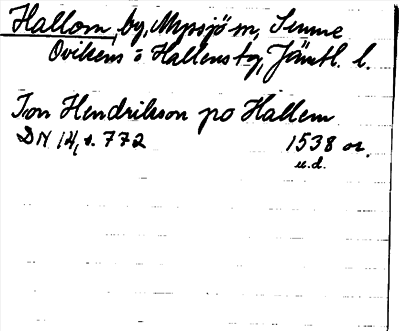 Hallom, by, Mysjö sn, Sunne
Ovikens o Hallens tg, Jämtl. l.
Jon Hendrikson po Hallem
DN 14, s. 772 1538 or.
u.d.